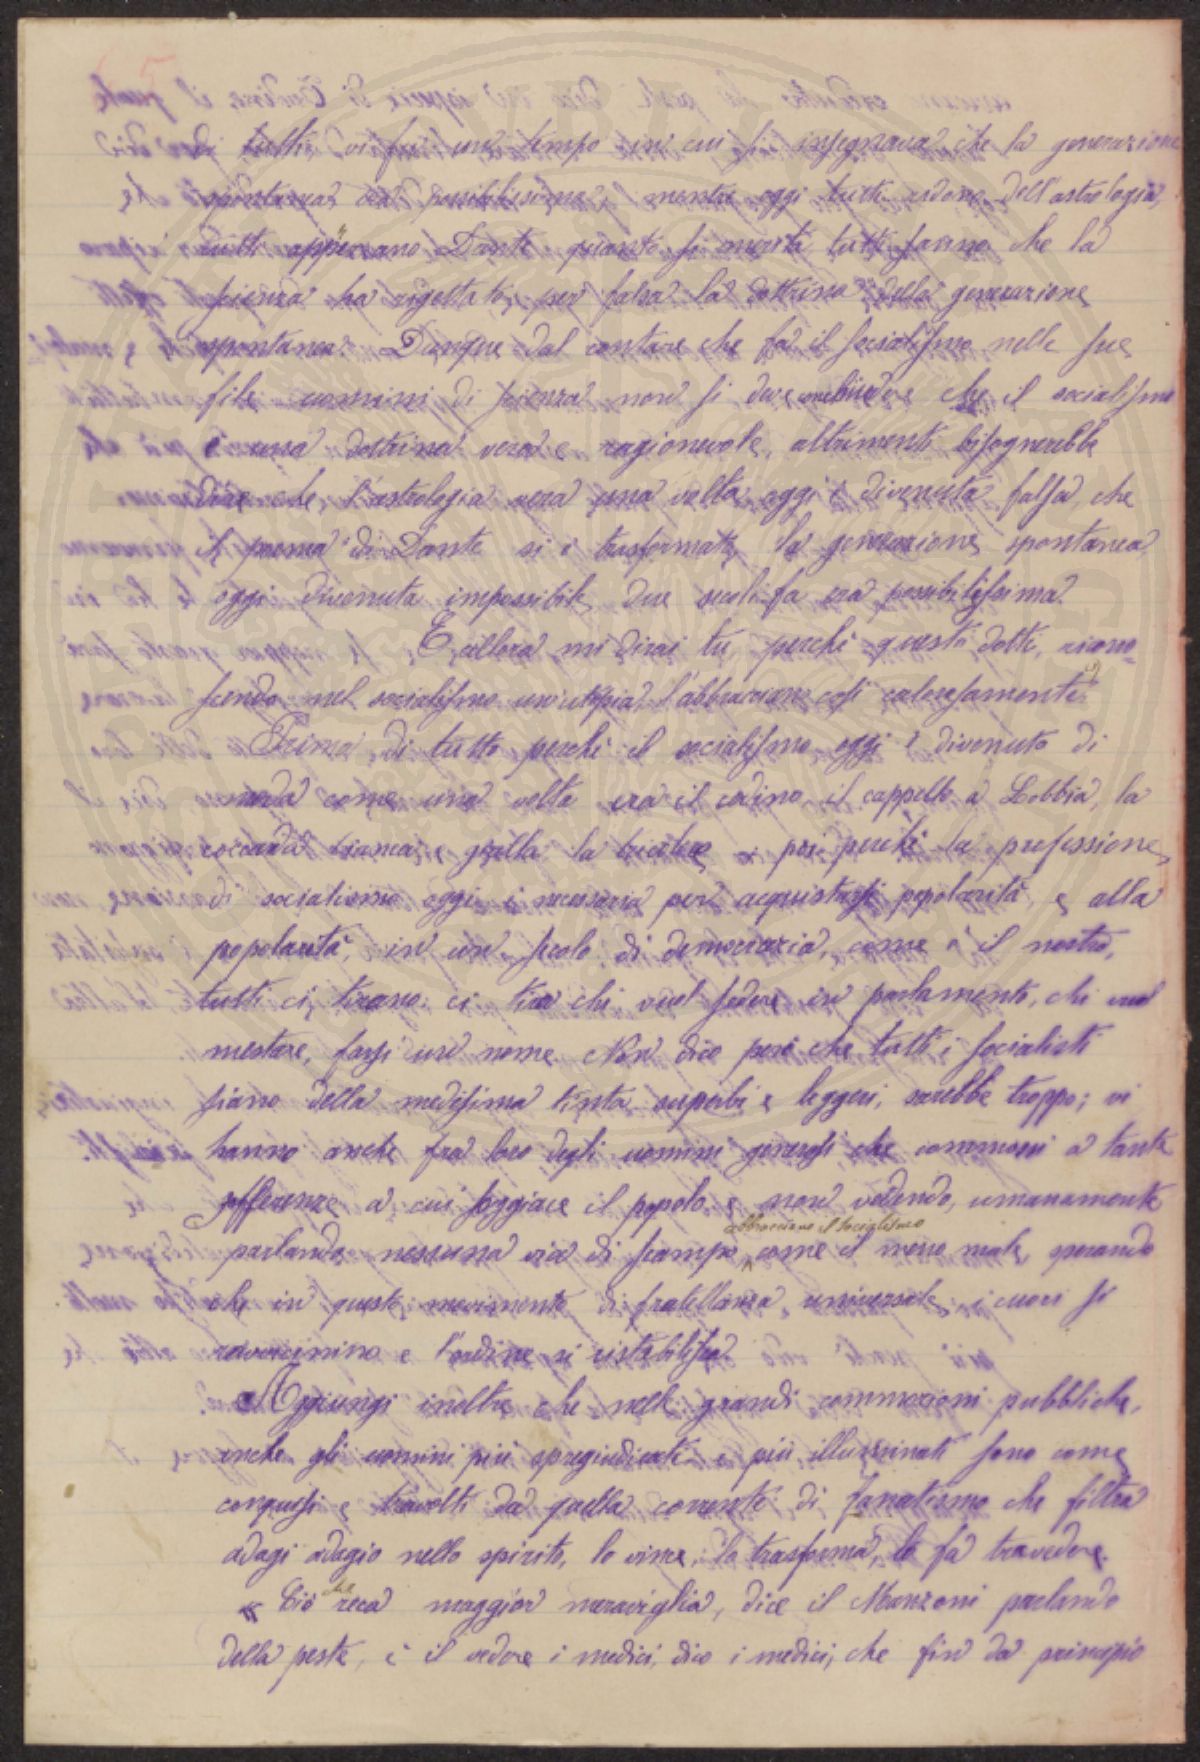 di tutti, vi fu un tempo in cui si insegnava che la generazione
spontanea era possibilissima; mentre oggi tutti ridono dell'astrologia,
tutti apprezzano Dante quanto si merita tutti sanno che la
scienza ha rigettato per falsa la dottrina della generazione
spontanea. Dunque dal contare che fa il socialismo nelle sue
file uomini di scienza non si deve conchiudere che il socialismo
è una dottrina vera e ragionevole, altrimenti bisognerebbe
dire che l'astrologia vera una volta oggi è divenuta falsa, che
il poema di Dante si è trasformato, la generazione spontanea
oggi divenuta impossibile due secoli fa era possibilissima.
E allora mi dirai tu, perchè questi dotti, ricono=
scendo nel socialismo un'utopia, l'abbracciano così calorosamente?
Prima di tutto perchè il socialismo oggi è divenuto di
moda come una volta era il codino, il cappello a Lobbia, la
coccarda bianca e gialla la tricolore e poi perchè la professione
di socialismo oggi è necessaria per acquistarsi popolarità, e alla
popolarità, in un secolo di democrazia, come è il nostro,
tutti ci tirano: ci tira chi vuol sedere in parlamento, chi vuol
mestare, farsi un nome. Non dico però che tutti i socialisti
siano della medesima tinta superbi e leggeri, sarebbe troppo; vi
hanno anche fra loro degli uomini generosi che commossi a tante
sofferenze a cui soggiace il popolo e non vedendo, umanamente
parlando, nessuna via di scampo abbracciano il socialismo come il meno male, sperando
che in questo movimento di fratellanza universale i cuori si
ravvicinino e l'ordine si ristabilisca
Aggiungi inoltre che nelle grandi commozioni pubbliche,
anche gli uomini più spregiudicati e più illuminati sono come
conquisi e travolti da quella corrente di fanatismo che filtra
adagi adagio nello spirito, lo vince, lo trasforma, lo fà travedere.
« Ciò che reca maggior meraviglia, dice il Manzoni parlando
della peste, è il vedere i medici, dico i medici, che fin da principio